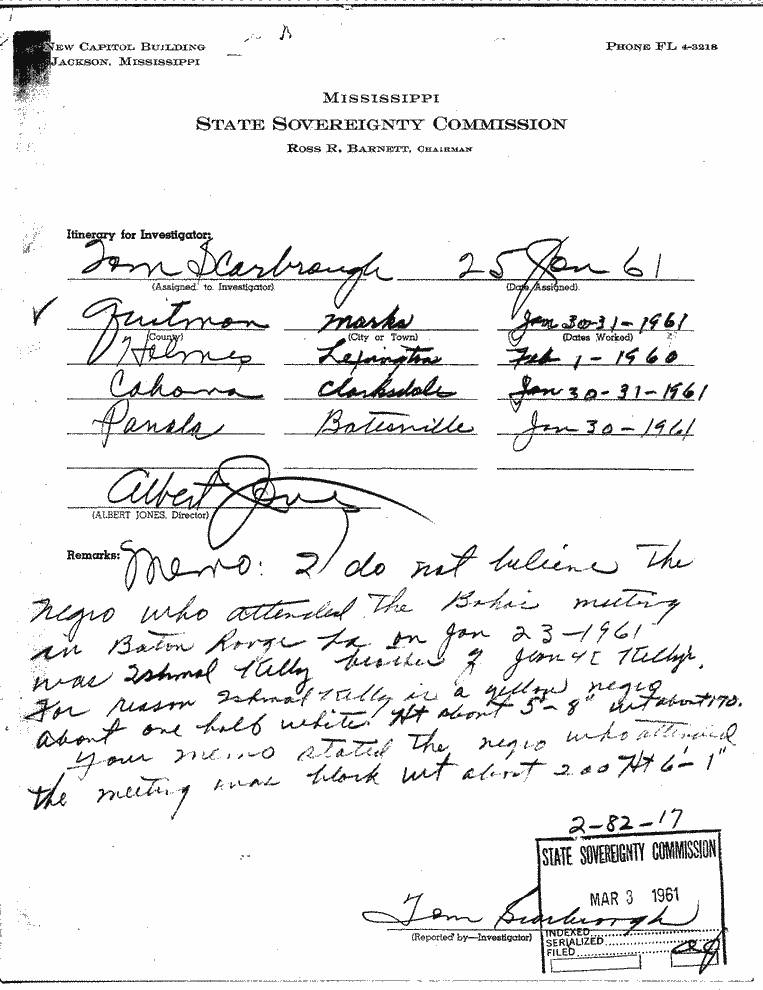 NEW CAPITOL BUILDING
JACKSON, MISSISSIPPI
PHONE FL 4-3218
MISSISSIPPI
STATE SOVEREIGNTY COMMISSION
ROSS R. BARNETT, CHAIRMAN
Itinerary for Investigator:
Tom Scarbrough 25 Jan 61
(Assigned to Investigator) (Date Assigned)
Quitman Marks Jan 30-31-1961
(County) (City or Town) (Dates Worked)
Holmes Lexington Feb 1-1960
Cohoma Clarksdale Jan 30-31-1961
Panola Batesville Jan 30-1961
Albert Jones
(ALBERT JONES, Director)
Remarks: Memo: I do not believe the
negro who attended the Bahai meeting
in Baton Rouge La on Jan 23-1961
was Ishmal Kelly brother of Kelly's.
For reason Ishmal Kelly is a yellow negro
about one half white. Ht about 5'-8" wt about 170.
Your memo stated the negro who attended
the meeting was black wt about 200 Ht 6'-1"
2-82-17
STATE SOVEREIGNTY COMMISSION
MAR 3 1961
Tom Scarbrough
(Reported by—Investigator)
INDEXED
SERIALIZED
FILED